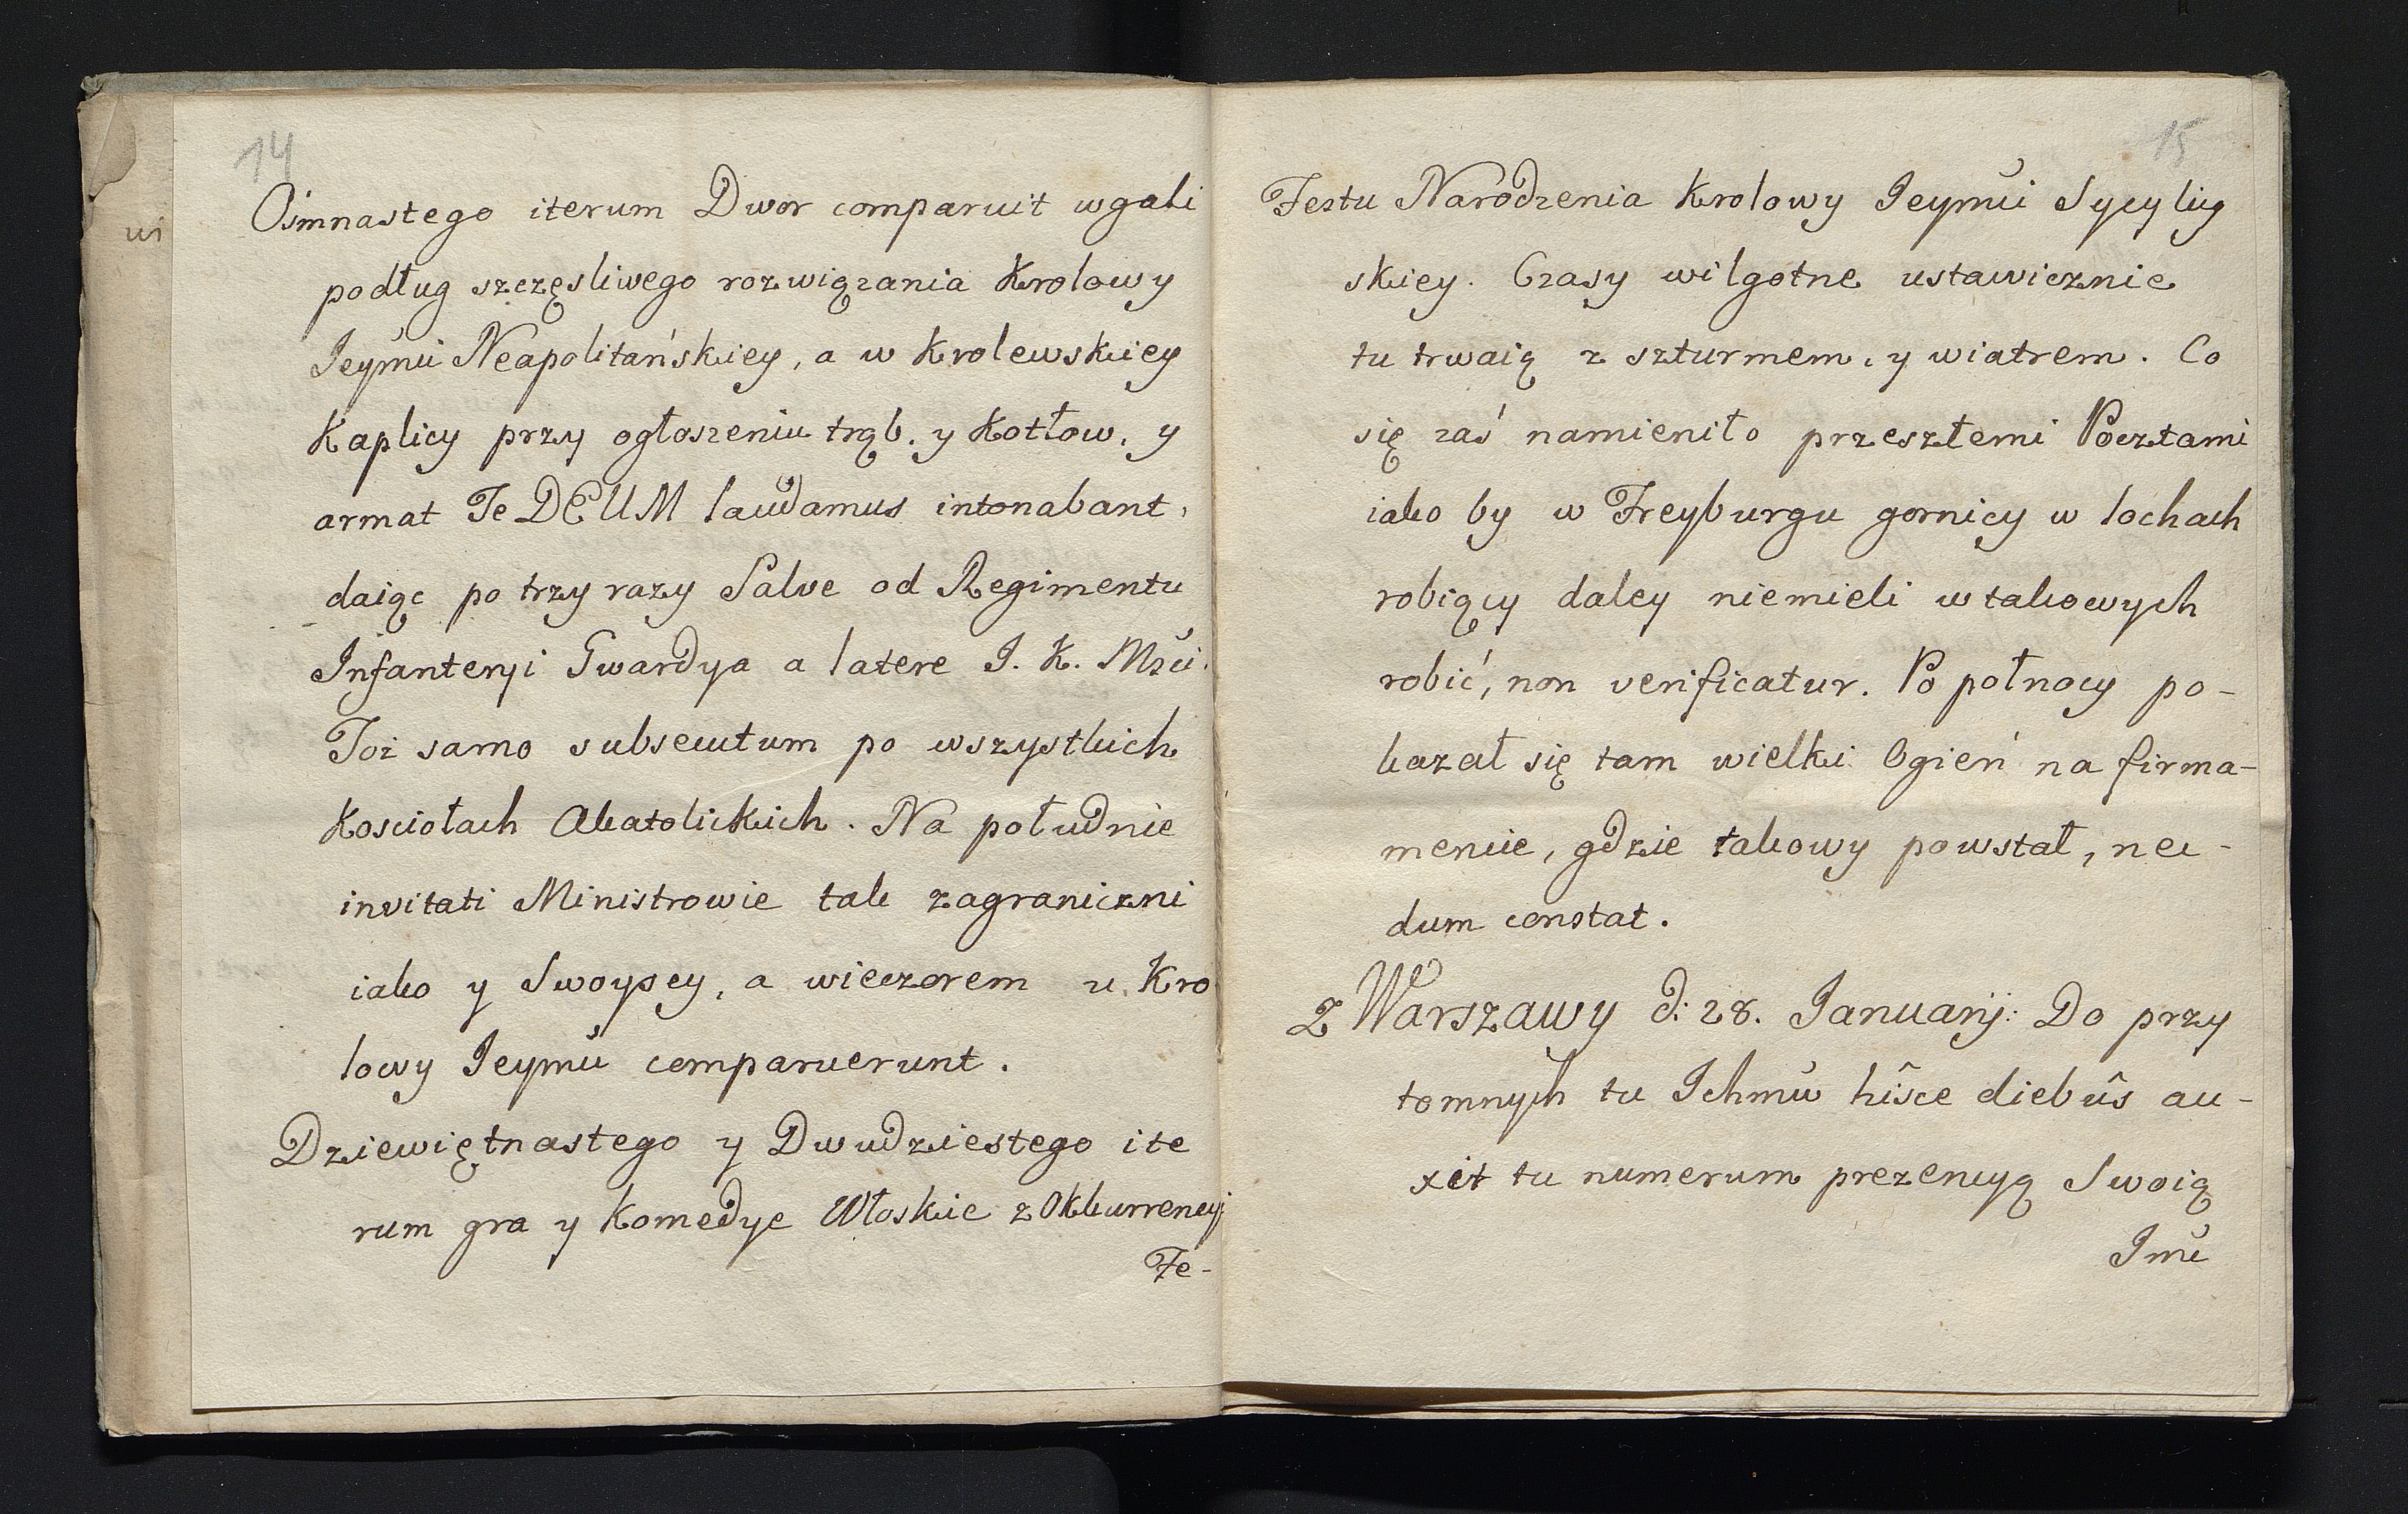 14
Ośmnastego iterum Dwor comparuit w gali
podług szczęsliwego rozwiązania Krolowy
Jeymci Neapolitańskiey, a w Krolewskiey
Kaplicy przy ogłoszeniu trąb, y Kotłow, y
armat Te DEUM laudamus intonabant,
daiąc po trzy razy Salve od Regimentu
Infanteryi Gwardya a latere J. K. Mści.
Toż samo subsecutum po wszystkich
Kosciołach Akatolickich. Na południe
invitati Ministrowie tak zagraniczni
iako y Swoyscy, a wieczorem u Kro
lowy Jeymci comparuerunt.
Dziewiętnastego y Dwudziestego ite
rum gra y Komedye Włoskie z Okkurrencyi
Fe-
15
Festu Narodzenia Krolowy Jeymci Sycyliy
skiey. Czasy wilgotne ustawicznie
tu trwaią z szturmem, y wiatrem. Co
się zaś namieniło przeszłemi Pocztami
iako by w Freyburgu gornicy w lochach
robiący daley niemieli w takowych
robić, non verificatur. Po połnocy po-
kazał się tam wielki Ogień na firma-
mencie, gdzie takowy powstał, nec-
dum constat.
Z Warszawy d: 28. Januarij: Do przy
tomnych tu Ichmć hîsce diebûs au-
xit tu numerum prezencyą Swoią
Jmć
ui